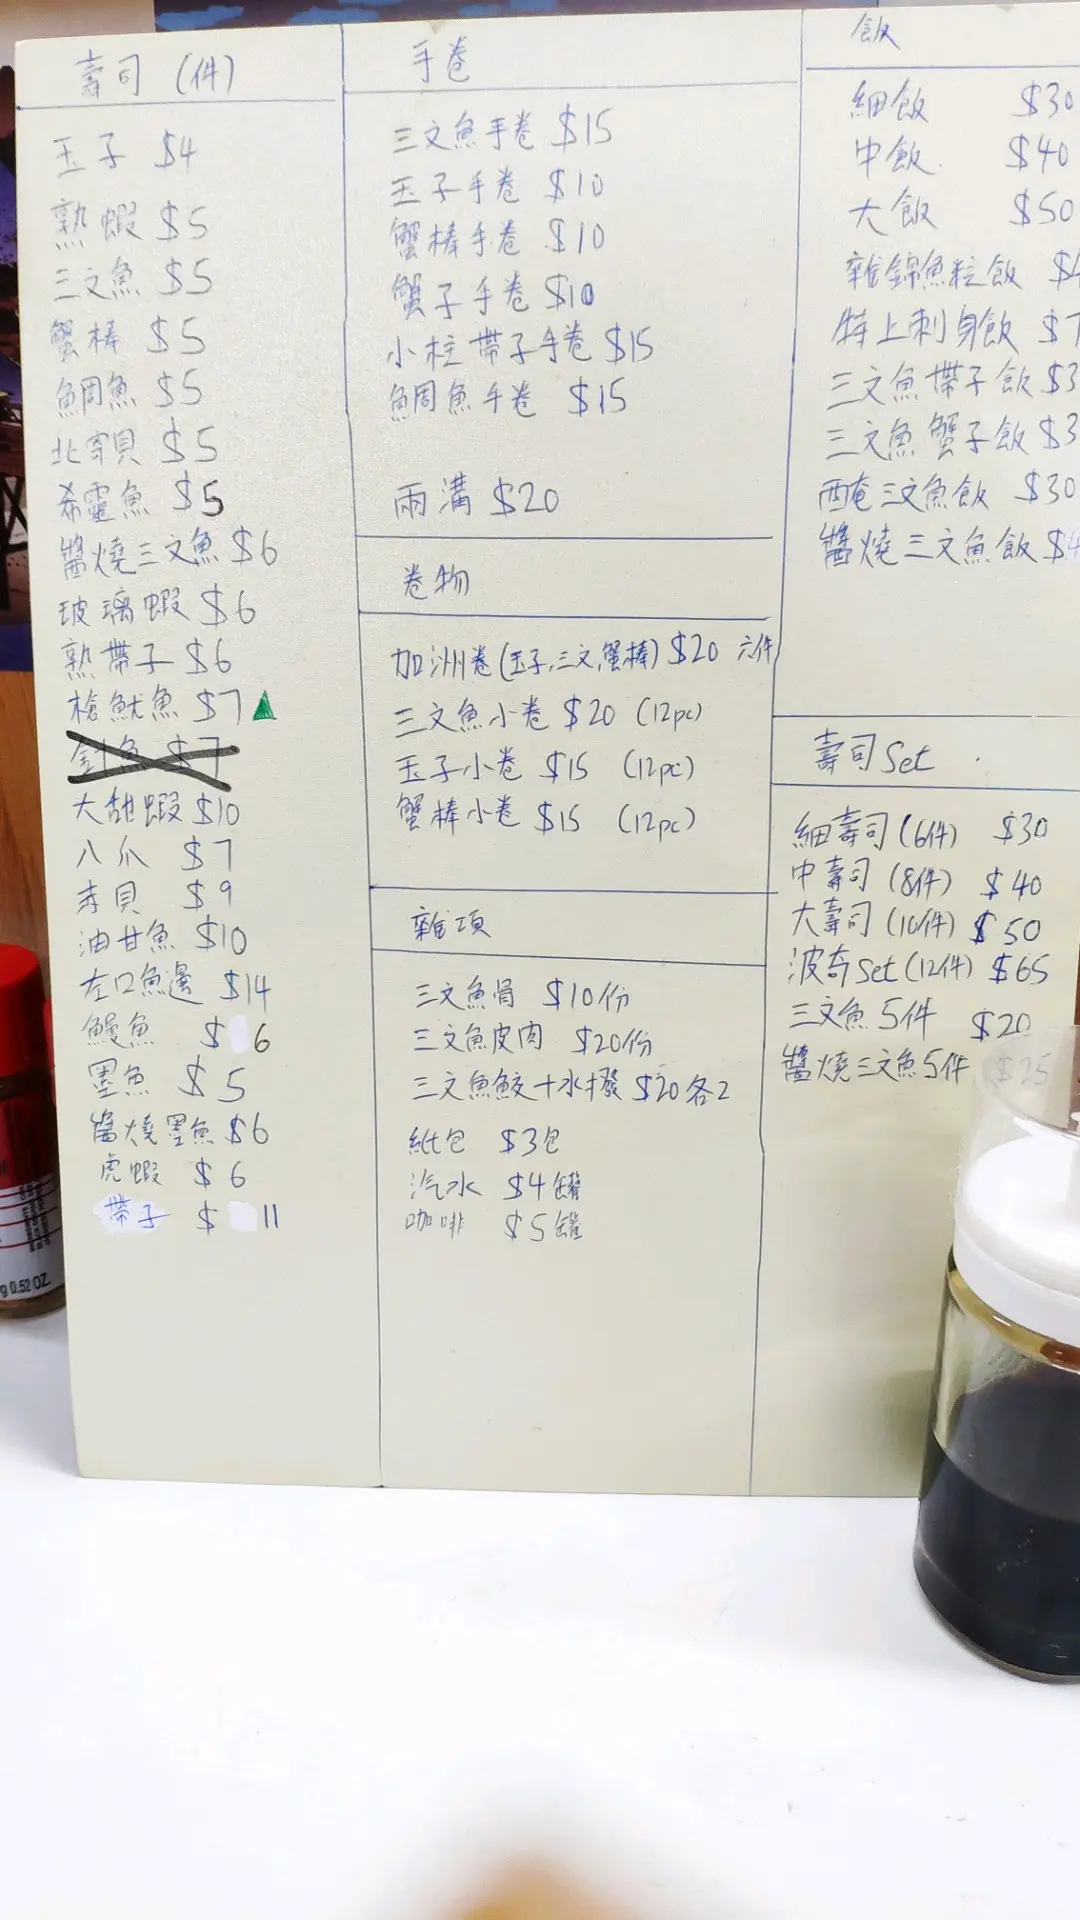 壽司 (件)
玉子 $4
熟蝦 $5
三文魚 $5
蟹棒 $5
鯛魚 $5
北寄貝 $5
希靈魚 $5
醬燒三文魚 $6
玻璃蝦 $6
熟帶子 $6
槍魷魚 $7
魚 $7
大甜蝦 $10
八爪 $7
赤貝 $9
油甘魚 $10
左口魚邊 $14
鰻魚 $ 6
墨魚 $5
醬燒墨魚 $6
虎蝦 $6
帶子 $ 11
手卷
三文魚手卷 $15
玉子手卷 $10
蟹棒手卷 $10
蟹子手卷 $10
小柱帶子手卷 $15
鯛魚手卷 $15
兩溝 $20
卷物
加洲卷(玉子,三文,蟹棒) $20 六件
三文魚小卷 $20 (12pc)
玉子小卷 $15 (12pc)
蟹棒小卷 $15 (12pc)
雜項
三文魚骨 $10份
三文魚皮肉 $20份
三文魚鮫+水撥 $20各2
紙包 $3包
汽水 $4罐
咖啡 $5罐
飯
細飯 $30
中飯 $40
大飯 $50
雜錦魚粒飯 $
特上刺身飯 $7
三文魚帶子飯 $3
三文魚蟹子飯 $3
醃三文魚飯 $30
醬燒三文魚飯 $4
壽司Set
細壽司(6件) $30
中壽司(8件) $40
大壽司(10件) $50
波奇Set(12件) $65
三文魚5件 $20
醬燒三文魚5件 $25
g 0.52 OZ.